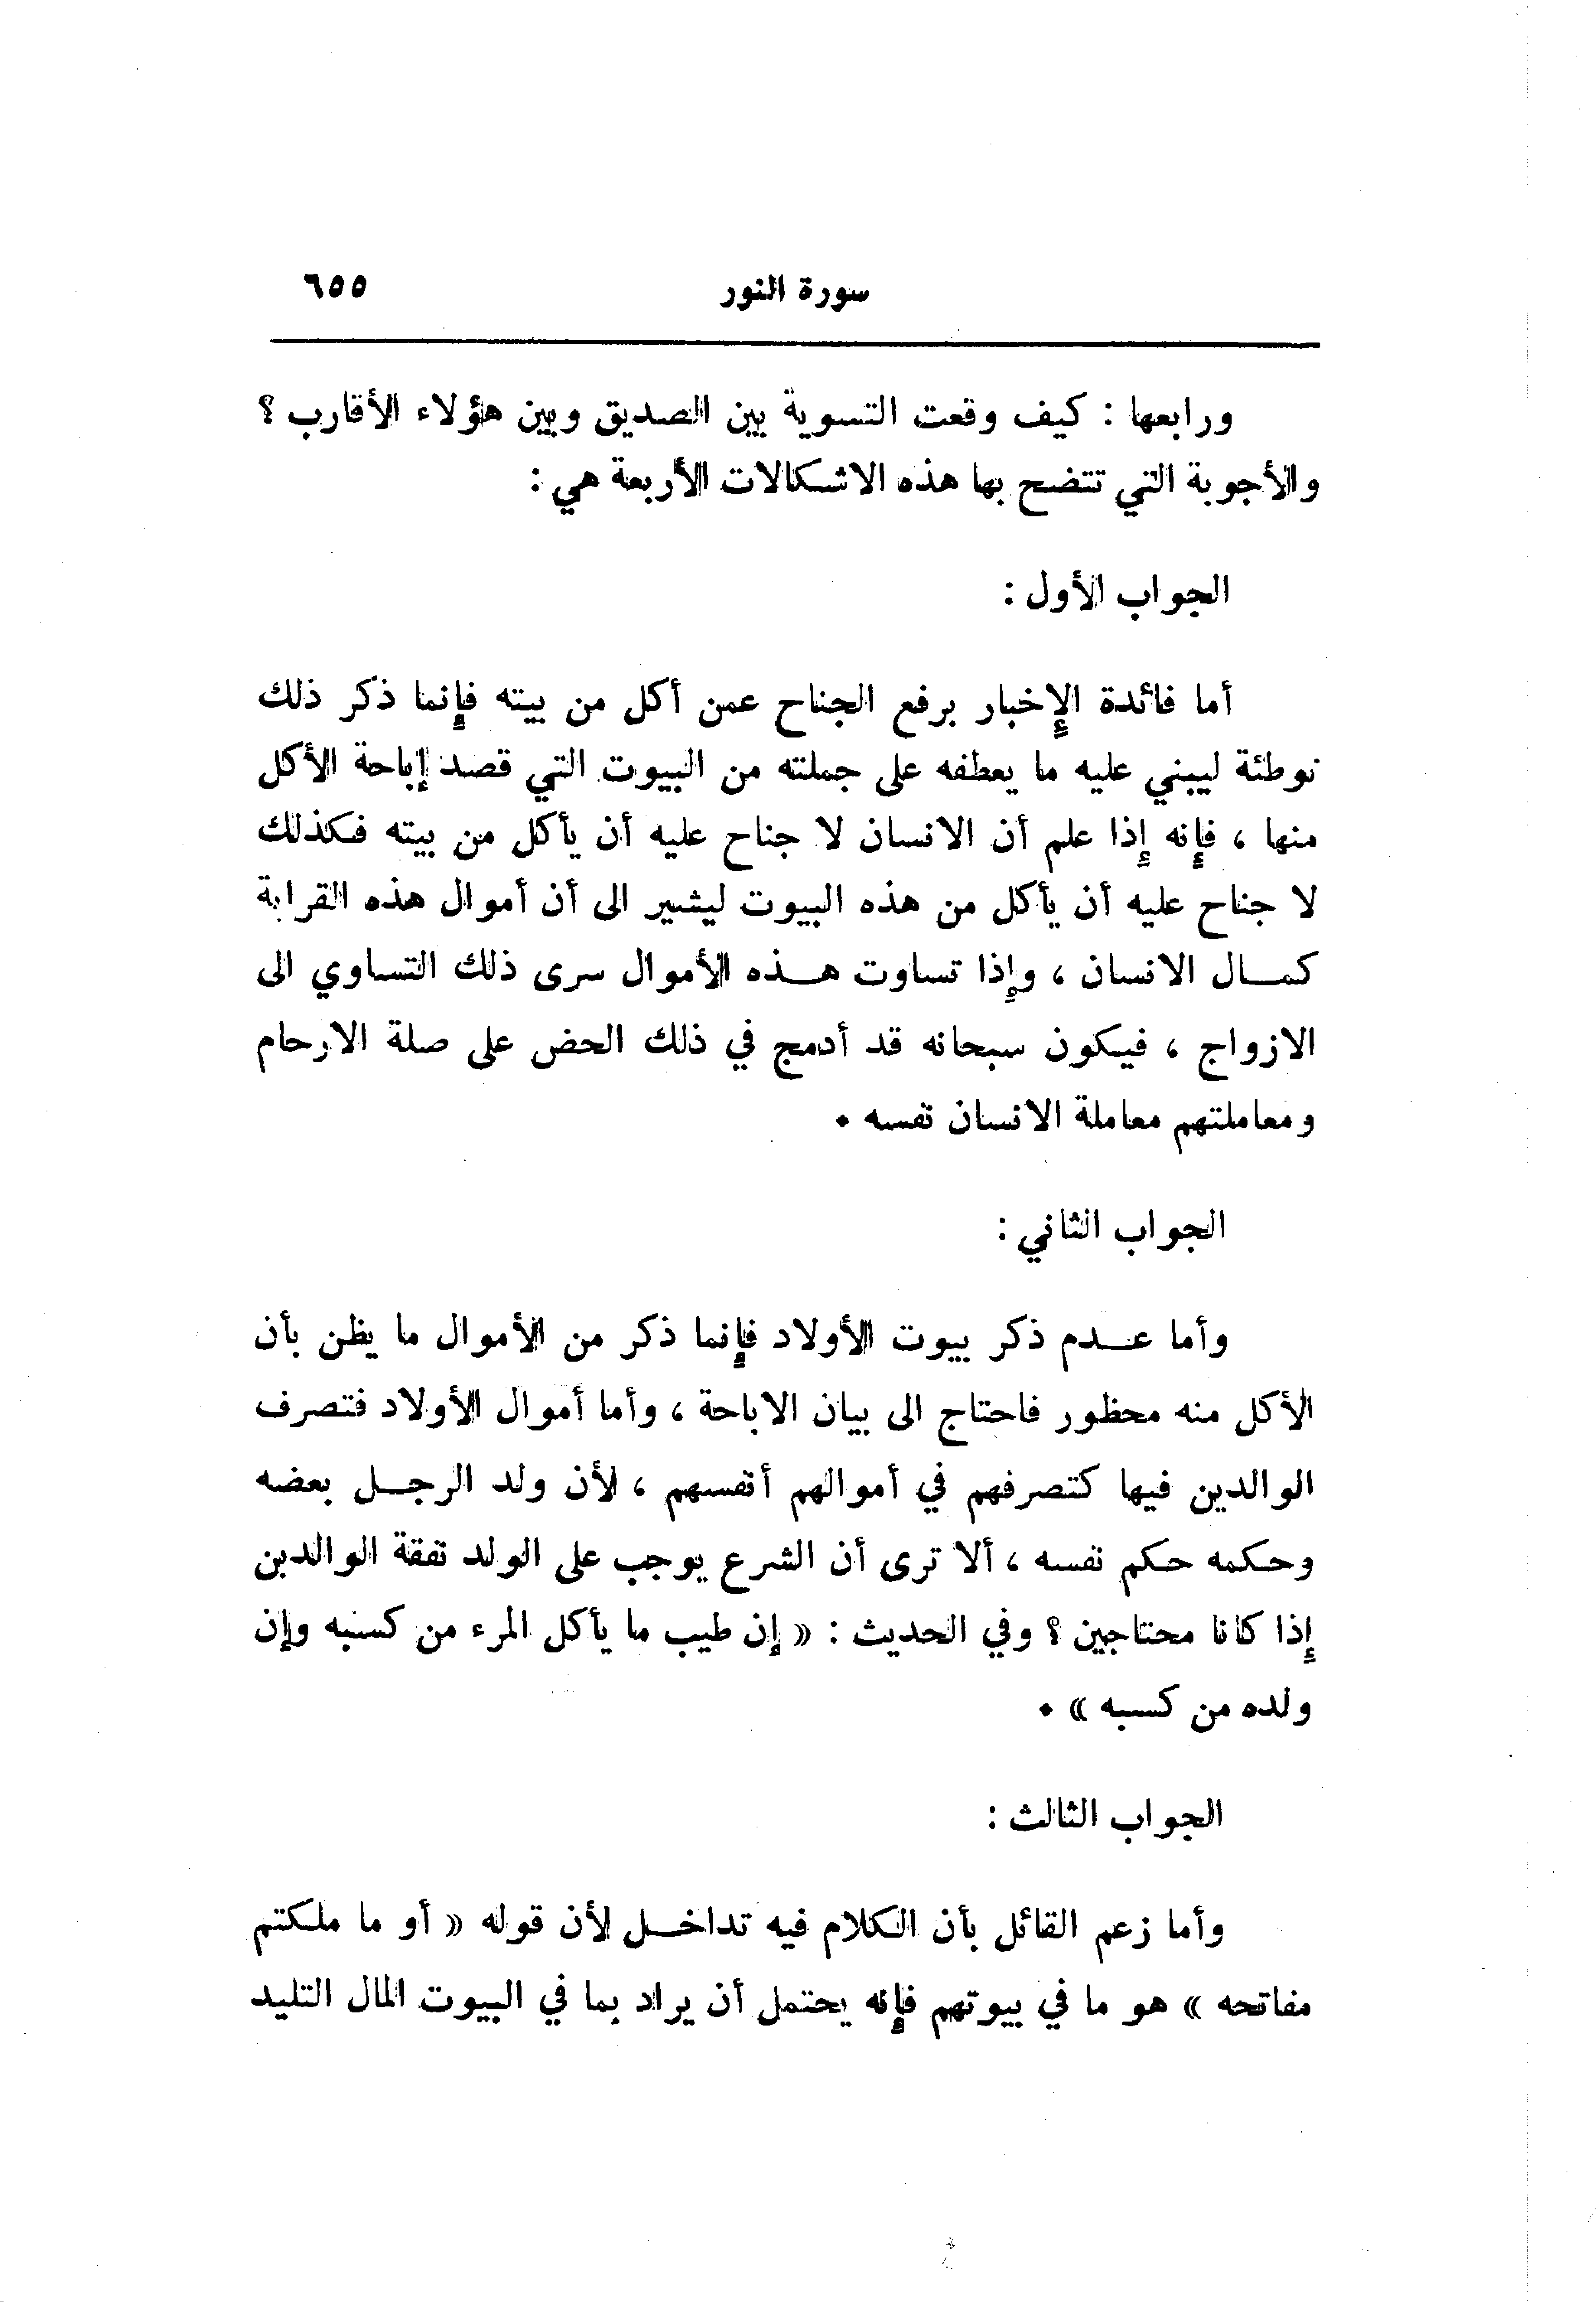 سورة النور ٦٥٥
ورابعها : كيف وقعت التسوية بين الصديق وبين هؤلاء الأقارب ؟
والأجوبة التي تتضح بها هذه الاشكالات الأربعة هي :
الجواب الأول :
أما فائدة الإخبار برفع الجناح عمن أكل من بيته فإنما ذكر ذلك
توطئة ليبني عليه ما يعطفه على جملته من البيوت التي قصد إباحة الأكل
منها ، فإنه إذا علم أن الانسان لا جناح عليه أن يأكل من بيته فكذلك
لا جناح عليه أن يأكل من هذه البيوت ليشير الى أن أموال هذه القرابة
كمال الانسان ، وإذا تساوت هذه الأموال سرى ذلك التساوي الى
الازواج ، فيكون سبحانه قد أدمج في ذلك الحض على صلة الارحام
ومعاملتهم معاملة الانسان نفسه .
الجواب الثاني :
وأما عدم ذكر بيوت الأولاد فإنما ذكر من الأموال ما يظن بأن
الأكل منه محظور فاحتاج الى بيان الاباحة ، وأما أموال الأولاد فتصرف
الوالدين فيها كتصرفهم في أموالهم أنفسهم ، لأن ولد الرجل بعضه
وحكمه حكم نفسه ، ألا ترى أن الشرع يوجب على الولد نفقة الوالدين
إذا كانا محتاجين ؟ وفي الحديث : « إن طيب ما يأكل المرء من كسبه وإن
ولده من كسبه » .
الجواب الثالث :
وأما زعم القائل بأن الكلام فيه تداخل لأن قوله « أو ما ملكتم
مفاتحه » هو ما في بيوتهم فإنه يحتمل أن يراد بما في البيوت المال التليد